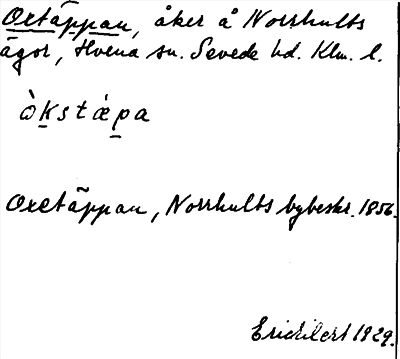 Oxtäppan, åker å Norrhults
ägor, Hvena sn. Sevede hd. Klm. l.
òkstǽpa
Oxetäppan, Norrhults bybeskr. 1856.
1929.